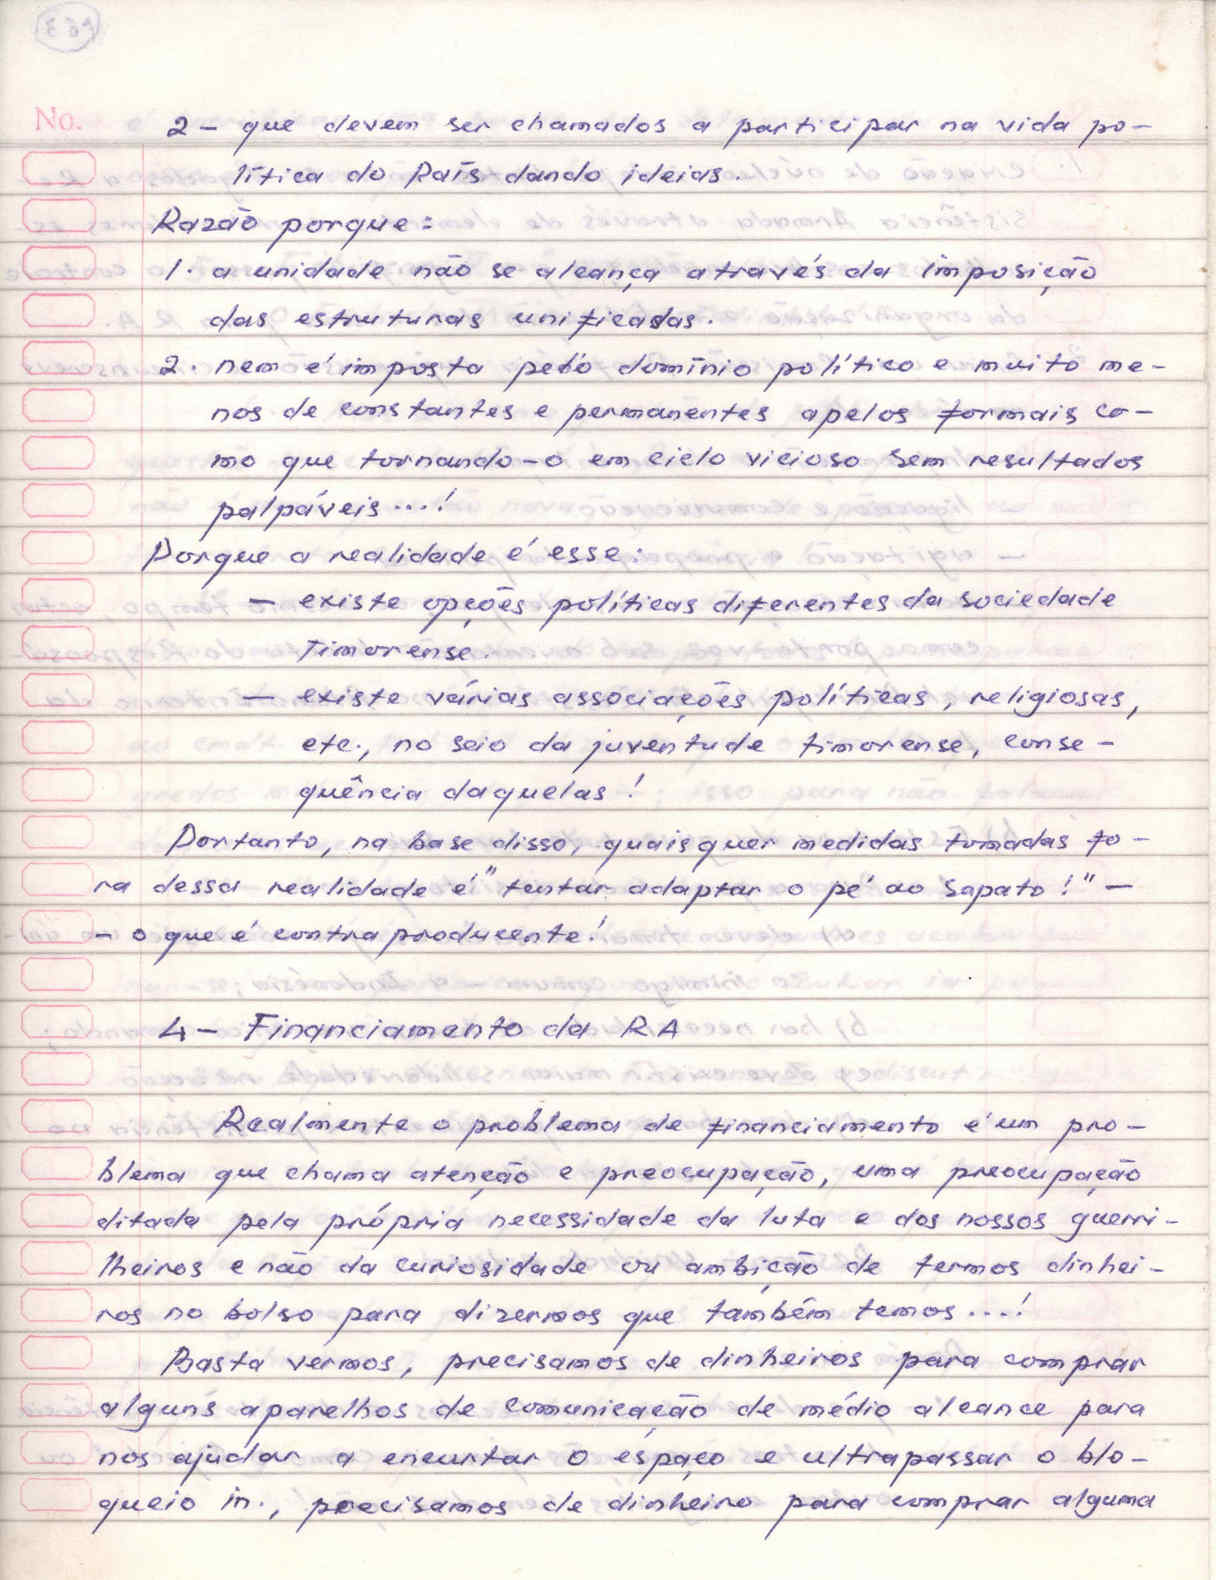 No.
2 - que devem ser chamados a participar na vida po-
lítica do País dando ideias.
Razão porque:
1. a unidade não se alcança através da imposição
das estruturas unificadas.
2. nem é imposta pelo domínio político e muito me-
nos de constantes e permanentes apelos formais co-
mo que tornando-o em ciclo vicioso sem resultados
palpáveis...!
Porque a realidade é esse:
- existe opções políticas diferentes da sociedade
Timorense.
- existe várias associações políticas, religiosas,
etc., no seio da juventude timorense, conse-
quência daquelas!
Portanto, na base disso, quaisquer medidas tomadas fo-
ra dessa realidade é "tentar adaptar o pé ao sapato!" -
- o que é contraproducente!
4 - Financiamento da RA
Realmente o problema de financiamento é um pro-
blema que chama atenção e preocupação, uma preocupação
ditada pela própria necessidade da luta e dos nossos guerri-
lheiros e não da curiosidade ou ambição de termos dinhei-
ros no bolso para dizermos que também temos...!
Basta vermos, precisamos de dinheiros para comprar
alguns aparelhos de comunicação de médio alcance para
nos ajudar a encurtar o espaço e ultrapassar o blo-
queio in., precisamos de dinheiro para comprar alguma